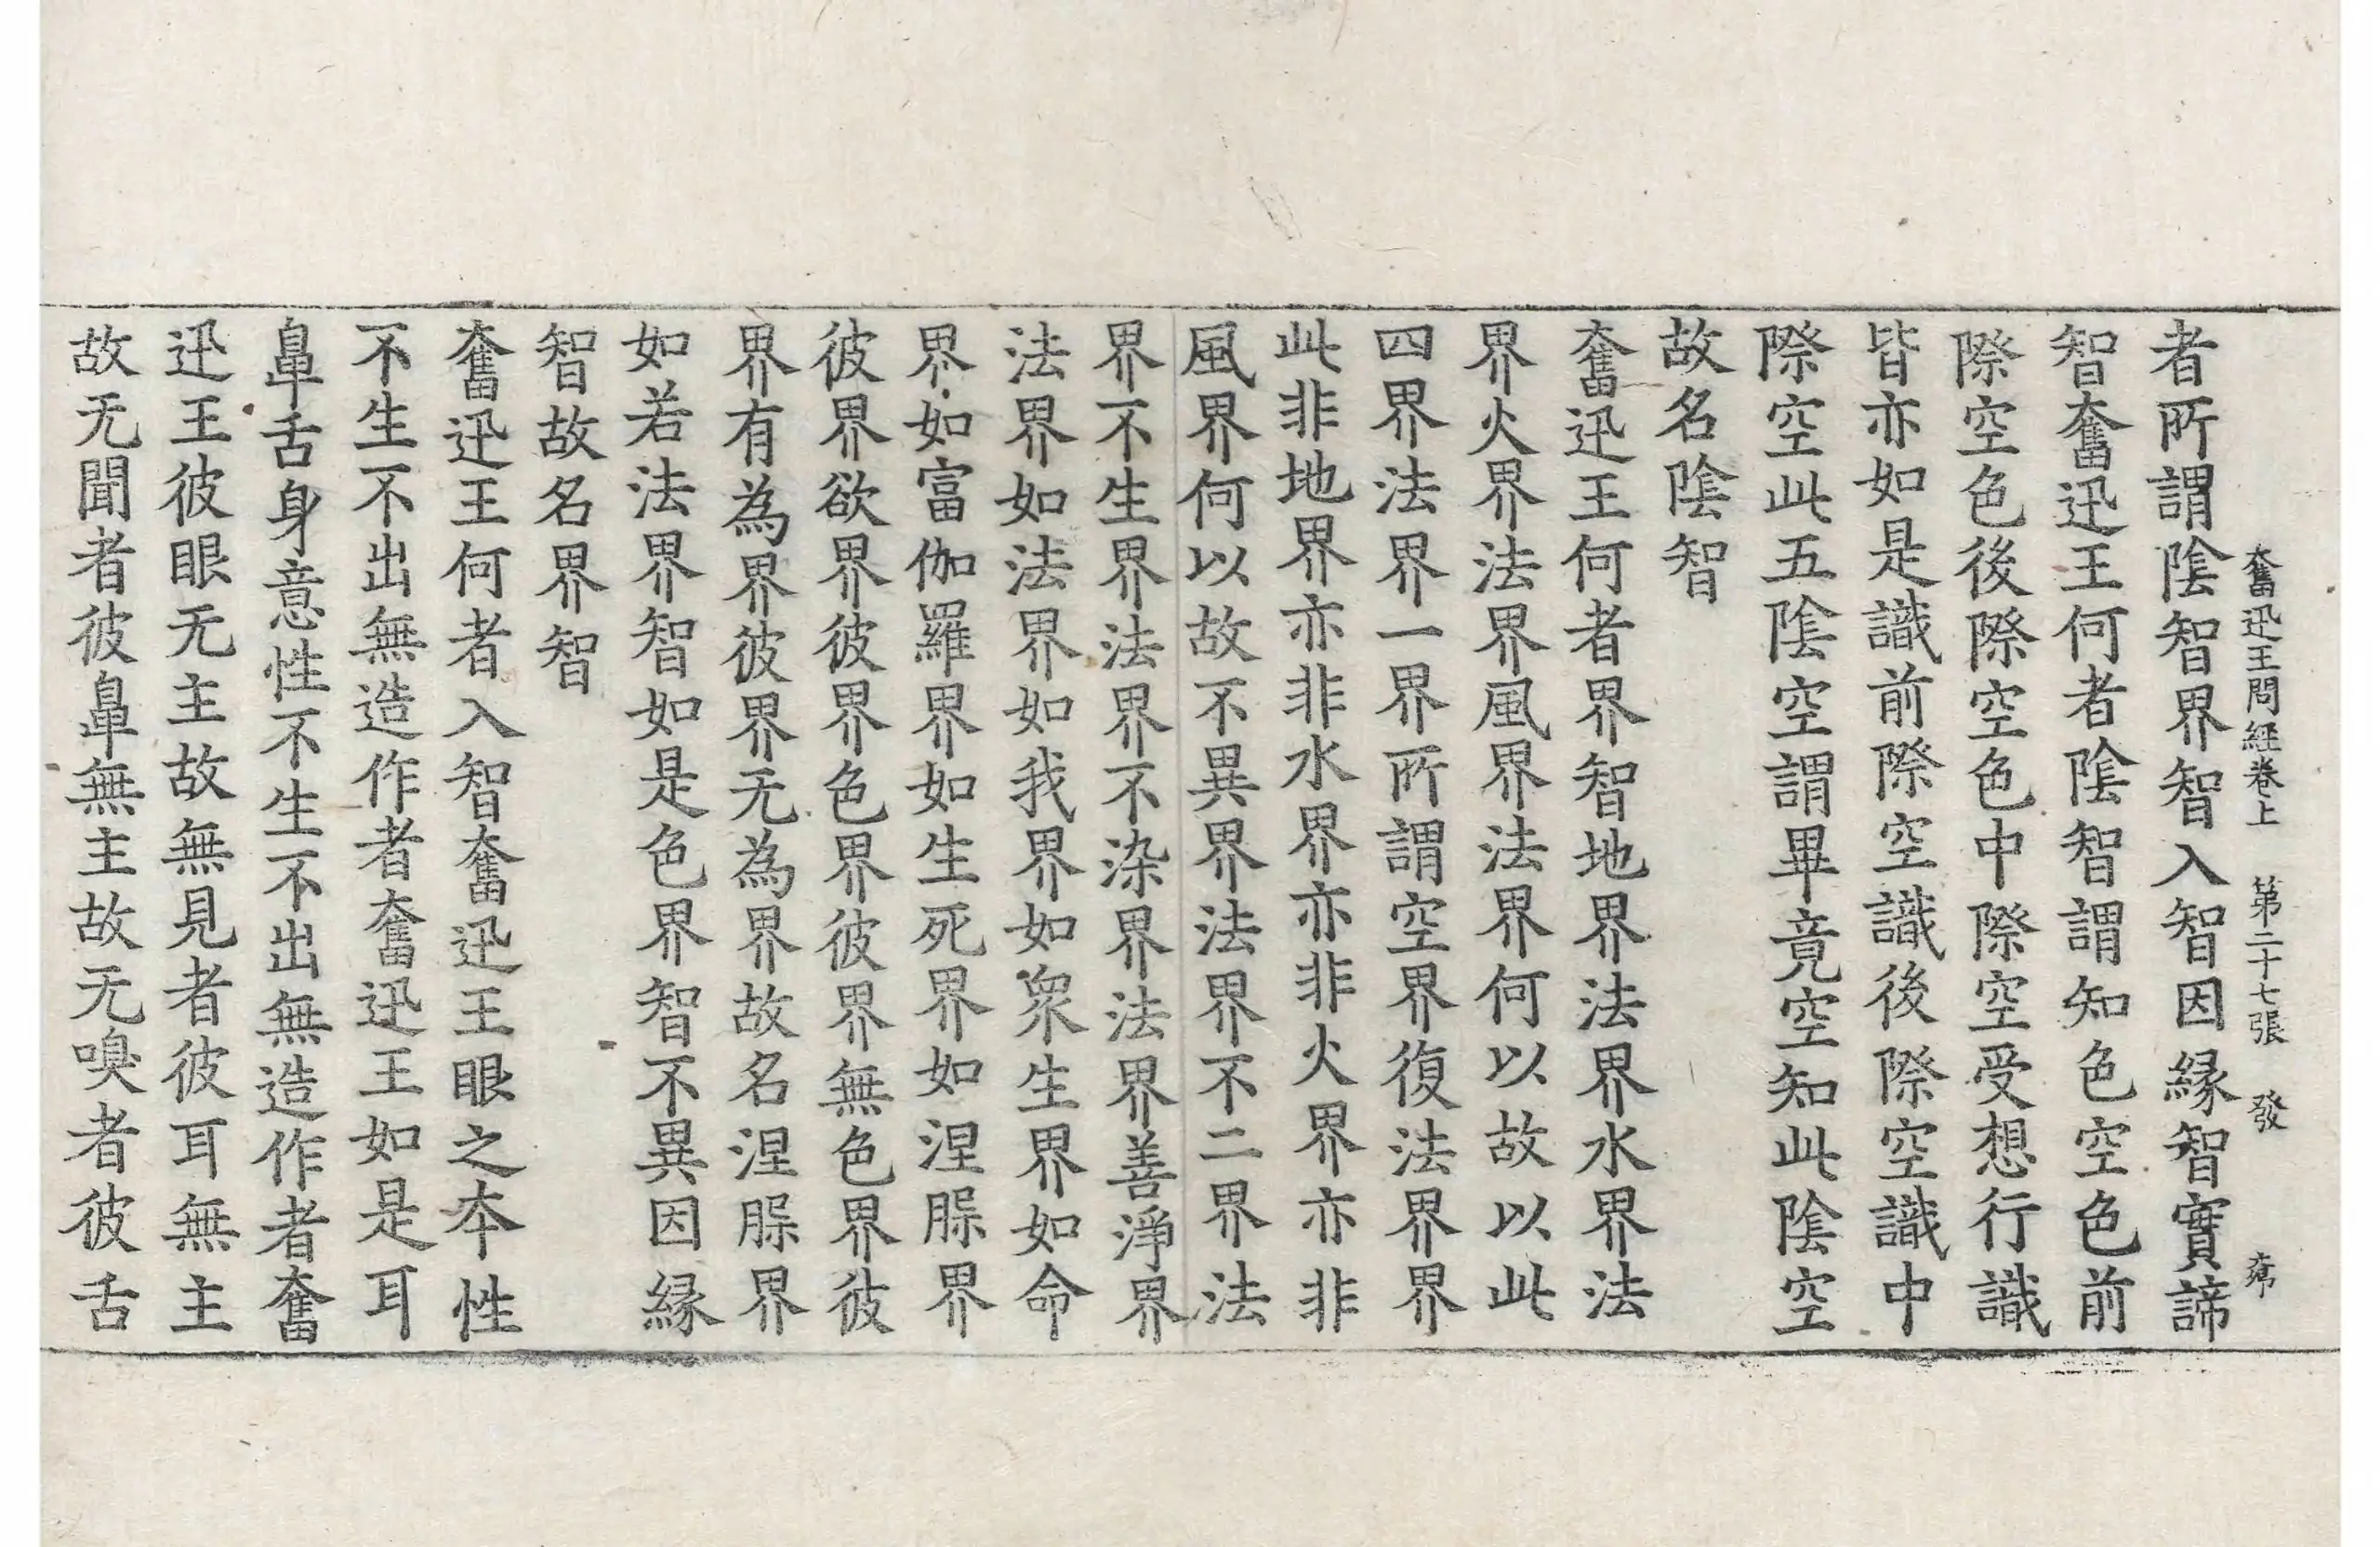 奮迅王問経卷上　第二十七張　發
者所謂陰智界智入智因縁智實諦
智奮迅王何者陰智謂知色空色前
際空色後際空色中際空受想行識
皆亦如是識前際空識後際空識中
際空此五陰空謂畢竟空知此陰空
故名陰智
奮迅王何者界智地界法界水界法
界火界法界風界法界何以故以此
四界法界一界所謂空界復法界界
此非地界亦非水界亦非火界亦非
風界何以故不異界法界不二界法
界不生界法界不染界法界善淨界
法界如法界如我界如衆生界如命
界如富伽羅界如生死界如涅槃界
彼界欲界彼界色界彼界無色界彼
界有為界彼界无為界故名涅槃界
如若法界智如是色界智不異因縁
智故名界智
奮迅王何者入智奮迅王眼之夲性
不生不出無造作者奮迅王如是耳
鼻舌身意性不生不出無造作者奮
迅王彼眼无主故無見者彼耳無主
故无聞者彼鼻無主故无嗅者彼舌